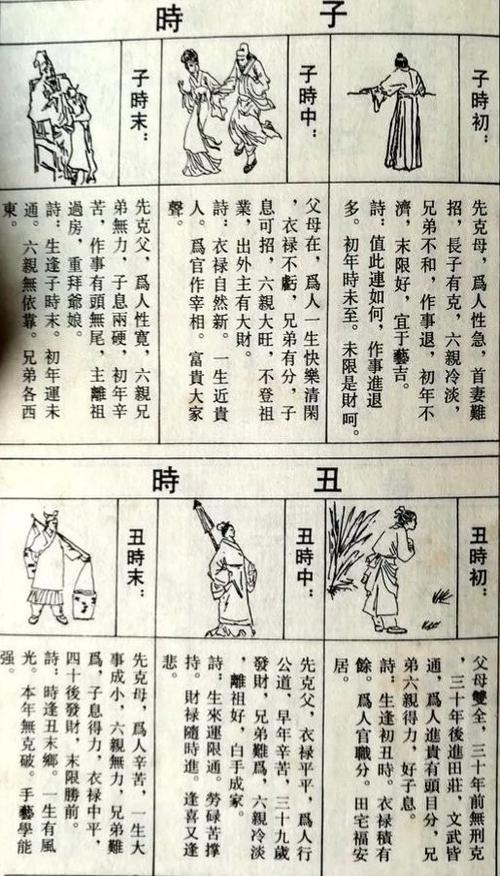 子時
子時初：
先克母，爲人性急，首妻難
招，長子有克，六親冷淡，
兄弟不和，作事退，初年不
濟，末限好，宜于藝吉。
詩：值此連如何，作事進退
多。初年時未至。未限是財呵。
子時中：
父母在，爲人一生快樂清閑
，衣禄不虧，兄弟有分，子
息可招，六親大旺，不登祖
業，出外主有大財。
詩：衣禄自然新。一生近貴
人。爲官作宰相。富貴大家
聲。
子時末：
先克父，爲人性寬，六親兄
弟無力，子息兩硬，初年辛
苦，作事有頭無尾，主離祖
過房，重拜爺娘。
詩：生逢子時末。初年運未
通。六親無依靠。兄弟各西
東。
丑時
丑時初：
父母雙全，三十年前無刑克
，三十年後進田莊，文武皆
通，爲人進貴有頭目分，兄
弟六親得力，好子息。
詩：生逢初丑時。衣禄積有
餘。爲人官職分。田宅福安
居。
丑時中：
先克父，衣禄平平，爲人行
公道，早年辛苦，三十九歲
發財，兄弟難爲，六親冷淡
，離祖好，白手成家。
詩：生來運限通。勞碌苦撑
持。財禄隨時進。逢喜又逢
悲。
丑時末：
先克母，爲人辛苦，一生大
事成小，六親無力，兄弟難
爲，子息得力，衣禄中平，
四十後發財，末限勝前。
詩：時逢丑末鄉。一生有風
光。本年無克破。手藝學能
强。